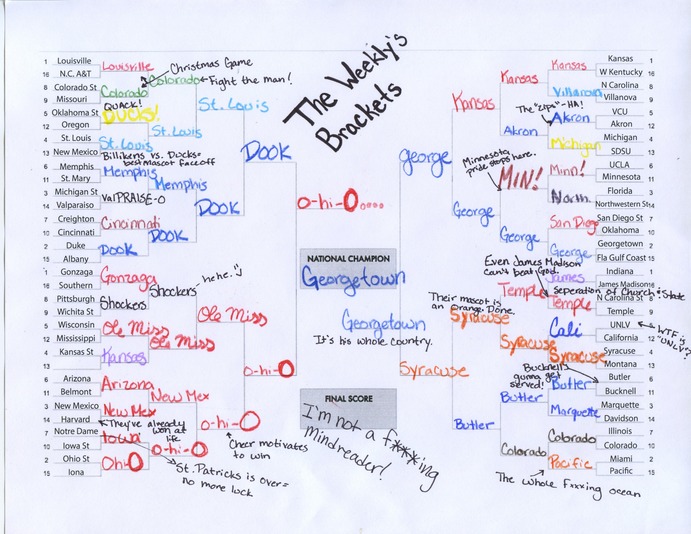 The Weekly's
Brackets
1 Louisville
16 N.C. A&T
8 Colorado St
9 Missouri
5 Oklahoma St
12 Oregon
4 St. Louis
13 New Mexico
6 Memphis
11 St. Mary
3 Michigan St
14 Valparaiso
7 Creighton
10 Cincinnati
2 Duke
15 Albany
1 Gonzaga
16 Southern
8 Pittsburgh
9 Wichita St
5 Wisconsin
12 Mississippi
4 Kansas St
13
6 Arizona
11 Belmont
3 New Mexico
14 Harvard
7 Notre Dame
10 Iowa St
2 Ohio St
15 Iona
Louisville
Colorado
QUACK!
DUCKS!
St. Louis
Billikens vs. Ducks=
best mascot faceoff
Memphis
ValPRAISE-O
Cincinnati
DOOK
Gonzaga
Shockers
Ole Miss
Kansas
Arizona
New Mex
They've already
won at
life
Iowa
OhiO
Christmas Game
Colorado
Fight the man!
St. Louis
Memphis
DOOK
Shockers
hehe :)
Ole Miss
New Mex
o-hi-O
St. Patricks is over=
no more luck
St. Louis
DOOK
Ole Miss
o-hi-O
Cheer motivates
to win
DOOK
o-hi-O
o-hi-O....
NATIONAL CHAMPION
Georgetown
Georgetown
It's his whole country.
FINAL SCORE
I'm not a f***ing
mindreader!
George
Syracuse
Kansas
George
Their mascot is
an orange. Done.
Syracuse
Butler
Kansas
Akron
Minnesota
pride stops here.
MIN!
George
Even James Madison
can't beat God.
Temple
Syracuse
Bucknell's
gunna get
served!
Butler
Colorado
Kansas
Villanova
The "zips" -HA!
Akron
Michigan
Minn!
North.
San Diego
George
James
seperation of Church & State
Temple
Cali
WTF is
"UNLV"?
Syracuse
Butler
Marquette
Colorado
Pacific
The whole Fxxxing ocean
Kansas 1
W Kentucky 16
N Carolina 8
Villanova 9
VCU 5
Akron 12
Michigan 4
SDSU 13
UCLA 6
Minnesota 11
Florida 3
Northwestern St 14
San Diego St 7
Oklahoma 10
Georgetown 2
Fla Gulf Coast 15
Indiana 1
James Madison
N Carolina St 8
Temple 9
UNLV 5
California 12
Syracuse 4
Montana 13
Butler 6
Bucknell 11
Marquette 3
Davidson 14
Illinois 7
Colorado 10
Miami 2
Pacific 15